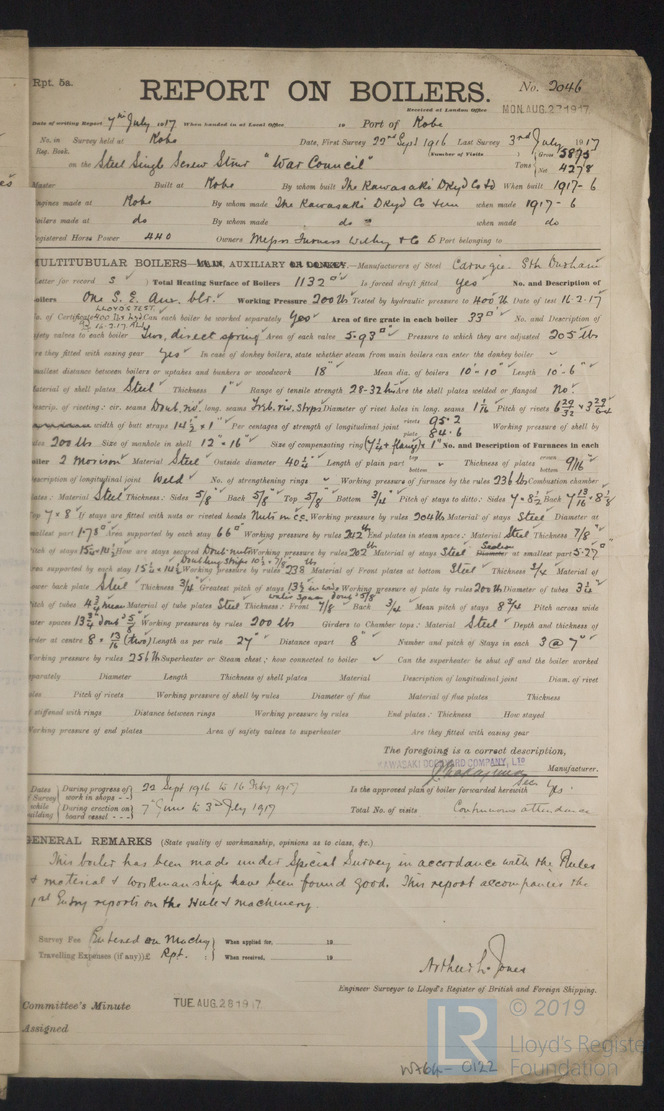 Rpt. 5a.
REPORT ON BOILERS.
No. 2046
Received at London Office MON. AUG. 27 1917
Date of writing Report 7th July 1917 When handed in at Local Office 19 Port of Kobe
No. in Reg. Book. Survey held at Kobe Date, First Survey 22nd Sept 1916 Last Survey 3rd July 1917
(Number of Visits
on the Steel Single Screw Stmr "War Council" Tons { Gross 5875 Net 4278
Master Built at Kobe By whom built The Kawasaki Dkyd Co Ltd When built 1917-6
Engines made at Kobe By whom made The Kawasaki Dkyd Co Ltd when made 1917-6
Boilers made at do By whom made do when made do
Registered Horse Power 440 Owners Messrs Furness Withy & Co Ld Port belonging to
MULTITUBULAR BOILERS MAIN, AUXILIARY OR DONKEY.—Manufacturers of Steel Carnegie. Sth Durham
Letter for record S Total Heating Surface of Boilers 1132 □' Is forced draft fitted yes No. and Description of
Boilers One S. E. Aux. blr. Working Pressure 200 lb Tested by hydraulic pressure to 400 lb Date of test 16.2.17
LLOYD'S TEST
No. of Certificate 400 lbs Can each boiler be worked separately Yes Area of fire grate in each boiler 33 □' No. and Description of
safety valves to each boiler two, direct spring Area of each valve 5.93 □" Pressure to which they are adjusted 205 lbs
Are they fitted with easing gear Yes In case of donkey boilers, state whether steam from main boilers can enter the donkey boiler
Smallest distance between boilers or uptakes and bunkers or woodwork 18" Mean dia. of boilers 10'-10" Length 10'-6"
Material of shell plates Steel Thickness 1" Range of tensile strength 28-32 tons Are the shell plates welded or flanged No.
Descrip. of riveting: cir. seams Doub. riv. long. seams Treb. riv. Straps Diameter of rivet holes in long. seams 1 1/16 Pitch of rivets 6 29/32 × 3 29/64
width of butt straps 14 1/2 × 1" Per centages of strength of longitudinal joint rivets 95.2 plate 84.6 Working pressure of shell by
rules 200 lbs Size of manhole in shell 12" × 16" Size of compensating ring (7 1/4 + flange) × 1" No. and Description of Furnaces in each
boiler 2 Morison Material Steel Outside diameter 40 1/4" Length of plain part top bottom Thickness of plates crown bottom 9/16"
Description of longitudinal joint Weld No. of strengthening rings Working pressure of furnace by the rules 236 lb Combustion chamber
plates: Material Steel Thickness: Sides 5/8" Back 5/8" Top 5/8" Bottom 3/4" Pitch of stays to ditto: Sides 7 × 8 1/2 Back 7 13/16 × 8 1/8
Top 7 × 8" If stays are fitted with nuts or riveted heads Nuts in cc. Working pressure by rules 204 lb Material of stays Steel Diameter at
smallest part 1.75" Area supported by each stay 66 □" Working pressure by rules 242 lb End plates in steam space: Material Steel Thickness 7/8"
Pitch of stays 15 1/2 × 14 1/2 How are stays secured Doub. nuts Working pressure by rules 202 Material of stays Steel Section at smallest part 5.27 □"
Doubling strips 10 1/2 × 7/8"
Area supported by each stay 15 1/2 × 14 1/2 Working pressure by rules 238 lb Material of Front plates at bottom Steel Thickness 3/4 Material of
Lower back plate Steel Thickness 3/4" Greatest pitch of stays 13 1/2 in wide water space doub 5/8 Working pressure of plate by rules 200 lb Diameter of tubes 3 1/4"
Pitch of tubes 4 3/8 mean Material of tube plates Steel Thickness: Front 7/8 Back 3/4 Mean pitch of stays 8 3/4 Pitch across wide
water spaces 13 3/4 doub 5/8 Working pressures by rules 200 lbs Girders to Chamber tops: Material Steel Depth and thickness of
girder at centre 8 × 13/16 (two) Length as per rule 27" Distance apart 8" Number and pitch of Stays in each 3 @ 7"
Working pressure by rules 256 lb Superheater or Steam chest; how connected to boiler Can the superheater be shut off and the boiler worked
separately Diameter Length Thickness of shell plates Material Description of longitudinal joint Diam. of rivet
holes Pitch of rivets Working pressure of shell by rules Diameter of flue Material of flue plates Thickness
If stiffened with rings Distance between rings Working pressure by rules End plates: Thickness How stayed
Working pressure of end plates Area of safety valves to superheater Are they fitted with easing gear
The foregoing is a correct description,
KAWASAKI DOCKYARD COMPANY, LTD
Manufacturer.
Dates of Survey while building { During progress of work in shops 22 Sept 1916 to 16 Feby 1917 Is the approved plan of boiler forwarded herewith Yes.
During erection on board vessel 7th June to 3rd July 1917 Total No. of visits Continuous attendance
GENERAL REMARKS (State quality of workmanship, opinions as to class, &c.)
This boiler has been made under Special Survey in accordance with the Rules
& material & workmanship have been found good. This report accompanies the
1st Entry reports on the Hull & machinery.
Survey Fee Entered on Machy When applied for, 19
Travelling Expenses (if any) £ Rpt. When received, 19
Arthur L. Jones
Engineer Surveyor to Lloyd's Register of British and Foreign Shipping.
Committee's Minute TUE. AUG. 28 1917
Assigned
LR © 2019
Lloyd's Register
Foundation
W764-0122